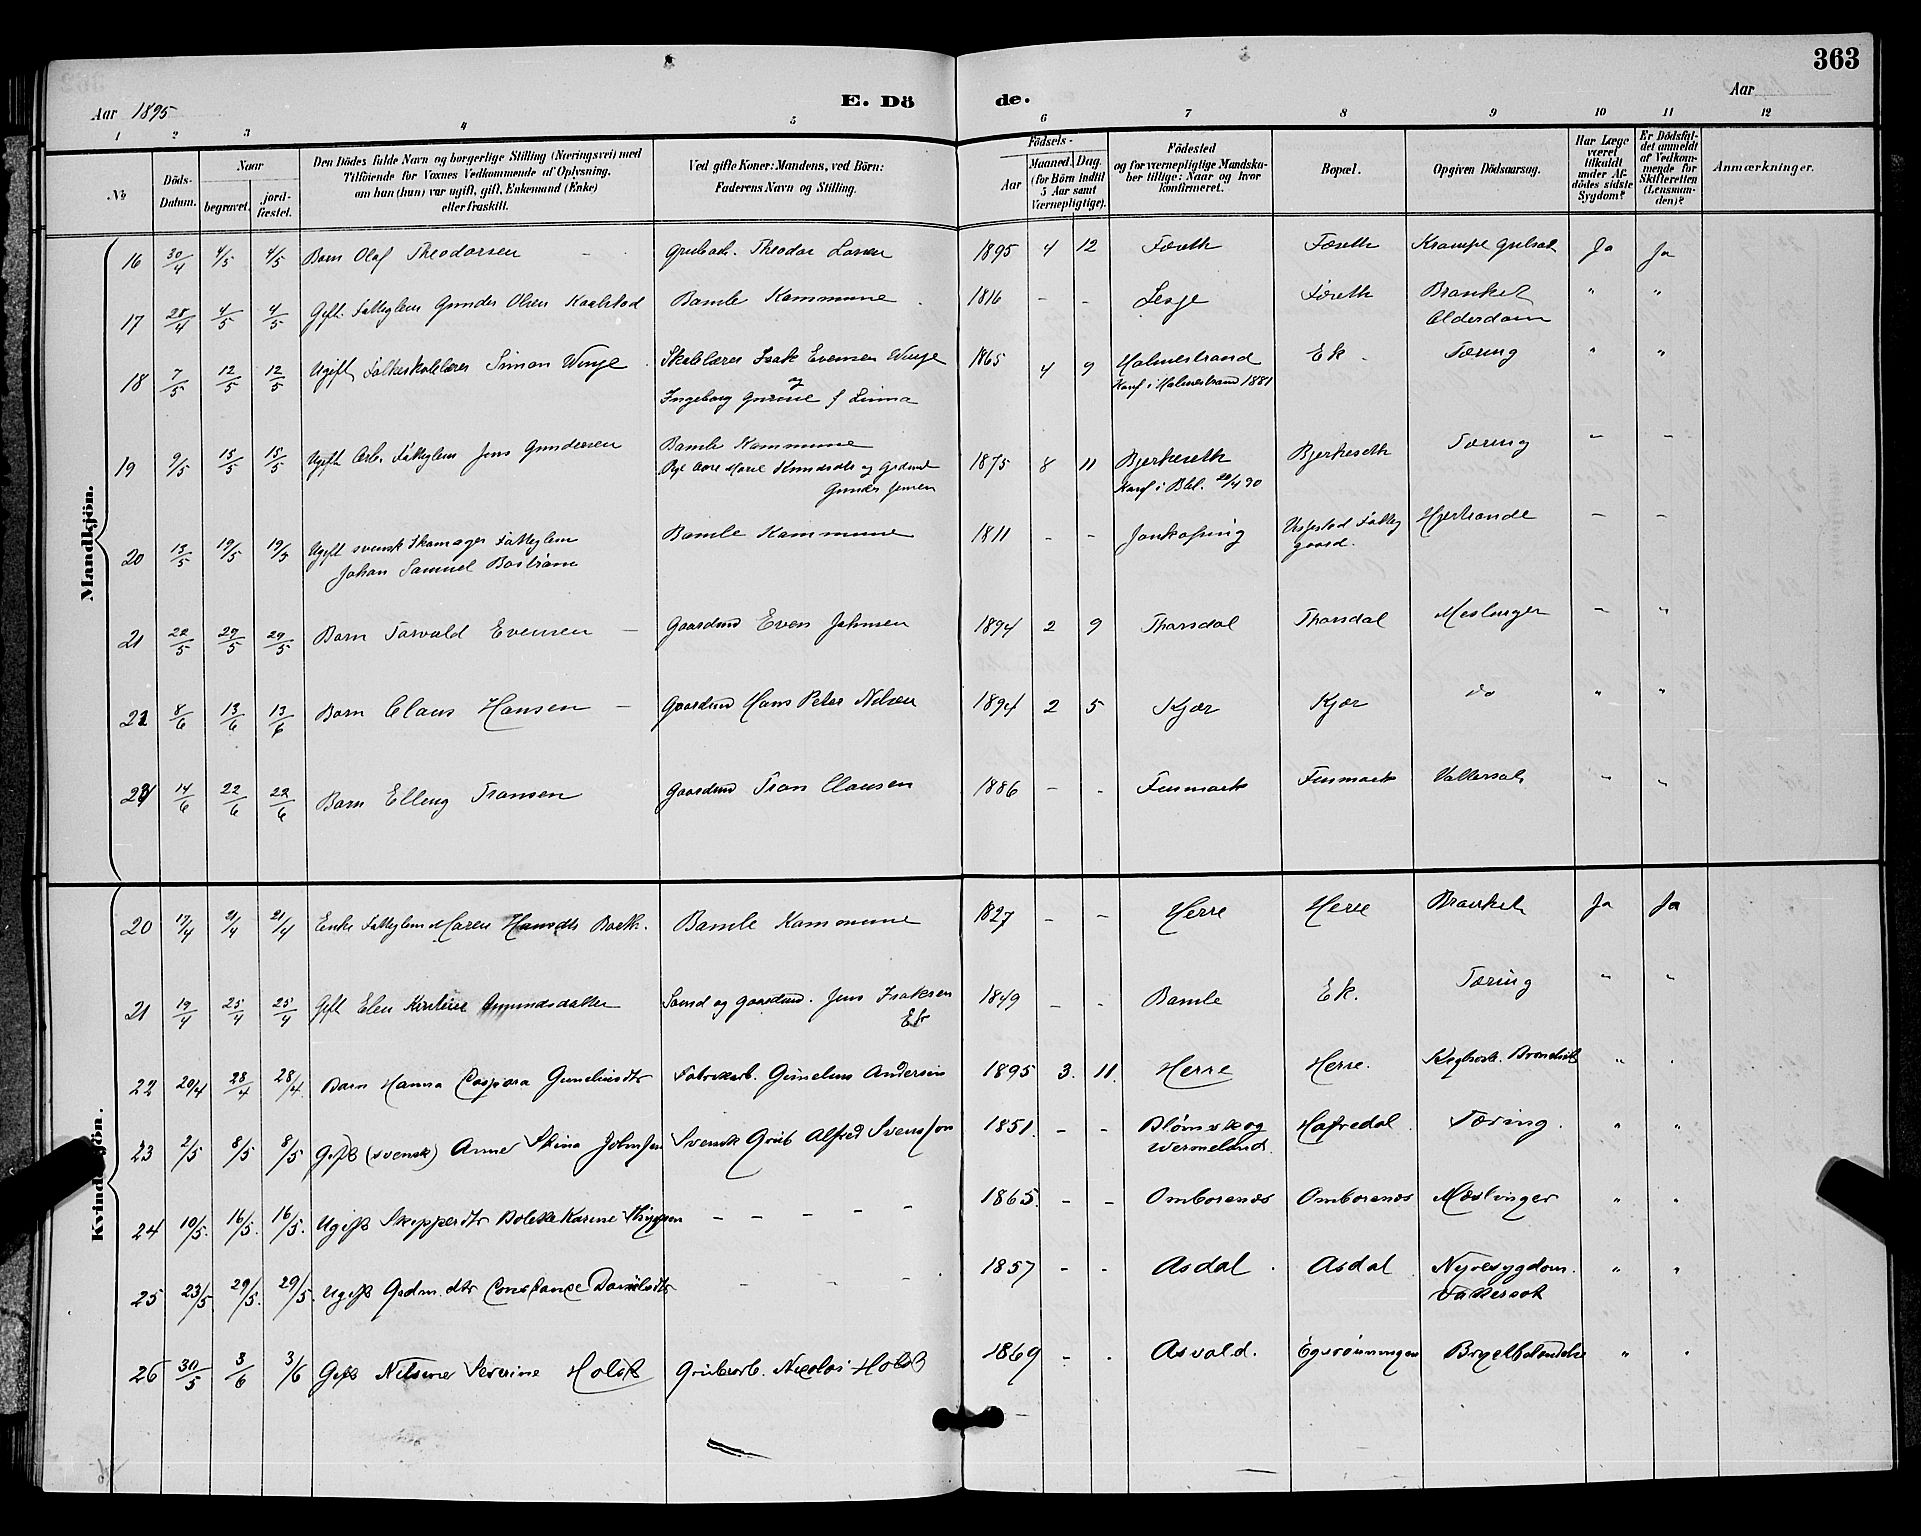 363
Aar 1895
E. Dö
de.
Aar
1 2 3 4 5 6 7 8 9 10 11 12
No
Döds-Datum.
Naar
begravet.
jord-fæstet.
Den Dödes fulde Navn og borgerlige Stilling (Næringsvei) med
Tilföiende for Voxnes Vedkommende af Oplysning,
om han (hun) var ugift, gift, Enkemand (Enke)
eller fraskilt.
Ved gifte Koner: Mandens, ved Börn:
Faderens Navn og Stilling.
Födsels-
Aar
Maaned. Dag.
(for Börn indtil
5 Aar samt
Værnepligtige).
Födested
og for værnepligtige Mandska-
ber tillige: Naar og hvor
konfirmeret.
Bopæl.
Opgiven Dödsaarsag.
Har Læge
været
tilkaldt
under Af-
dödes sidste
Sygdom?
Er Dödsfal-
det anmeldt
af Vedkom-
mende for
Skifteretten
(Lensman-
den)?
Anmærkninger.
Mandkjön.
16 30/4 4/5 4/5 Barn Olaf Theodorsen – Grubearb. Theodor Larsen 1895 4 12 Företh Företh Krampe Gulsot Ja Ja
17 28/4 4/5 4/5 Gift Fattiglem Gunder Olsen Bamle Kommune 1816 – – Företh Brankel " "
Alderdom
18 7/5 12/5 12/5 Ugift Simon Winge Skolelærer Isak Evensen Winge 1865 4 9 Holmestrand Ek Tæring " "
og
Ingeborg f Linna
Konf i Holmestrand 1881
19 9/5 15/5 15/5 Ugift Fattiglem Jens Gundersen Bamle Kommune 1875 8 11 Bjerkeseth Bjerkeseth Tæring – –
Gunder Jensen
Konf i Bbl. 20/4 90
20 13/5 19/5 19/5 Ugift svensk Skomager Fattiglem Bamle Kommune 1811 – – Jonkøping Fattig Hjertoande – –
Johan Samuel Boström
gaard.
21 22/5 29/5 29/5 Barn Torvald Evensen – Gaardmd Even Johnsen 1894 2 9 Thorsdal Thorsdal Meslinger – "
22 8/6 13/6 13/6 Barn Claus Hansen – Gaardmd Hans Peter Nilsen 1894 2 5 Kjær Kjær do " "
23 14/6 22/6 22/6 Barn Elling Fransen Gaardmd Frans Clausen 1886 – – Finmark Finmark Vattersot " "
Kvindekjön.
20 17/4 21/4 21/4 Enke Fattiglem Maren Hansdtr Bamle Kommune 1827 – – Herre Herre Brankel Ja Ja
21 19/4 25/4 25/4 Gift Elen Kirstine Amundsdatter Sømd og gaardmd. Jens Isaksen 1849 – – Bamle Ek. Tæring " "
Ek
22 20/4 28/4 28/4 Barn Hanna Caspara Guneliusdtr Fabrikarb. Gunelius Andersen 1895 3. 11. Herre Herre. Bronchit " "
23 2/5 8/5 8/5 Gift (svensk) Anne Stina Johnsen Svensk Grub Alfred Svensson 1851. – – Blomskog Hafredal Tæring. " "
Wermeland.
24 10/5. 16/5. 16/5. Ugift Skipperdtr Bolette Karine Thygesen – – – – – 1865. – – Omborenæs Omborenæs Mæslinger " "
25 23/5 29/5. 29/5. Ugift Grdm. dtr Constance Danielsdtr – – – 1857 – – Asdal Asdal Nyresygdom. " "
Vattersot
26 30/5 3/6 3/6 Gift Nilsine Severine Holst Grubearb. Nicolai Holst 1869 – – Asvald. Egsrönningen Brystbetændelse " "